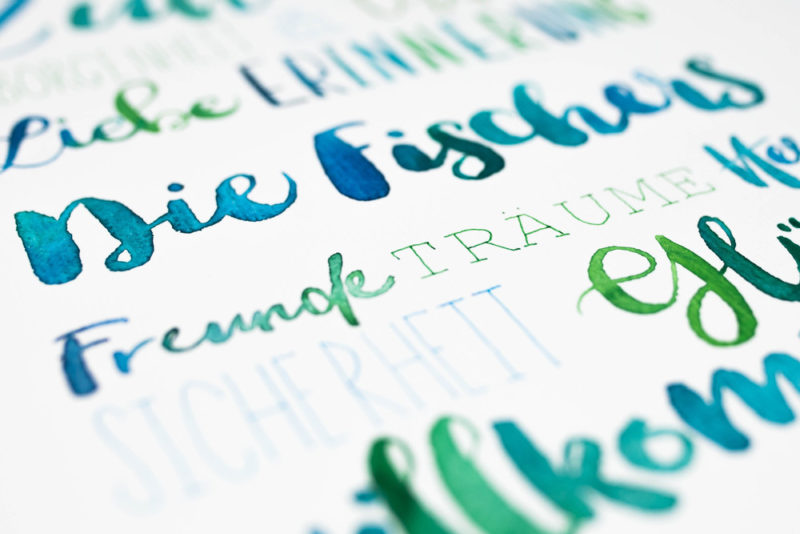 BORGENHEIT &
Liebe ERINNERUNG
Die Fischers
Freunde TRÄUME
SICHERHEIT Glü
llkom